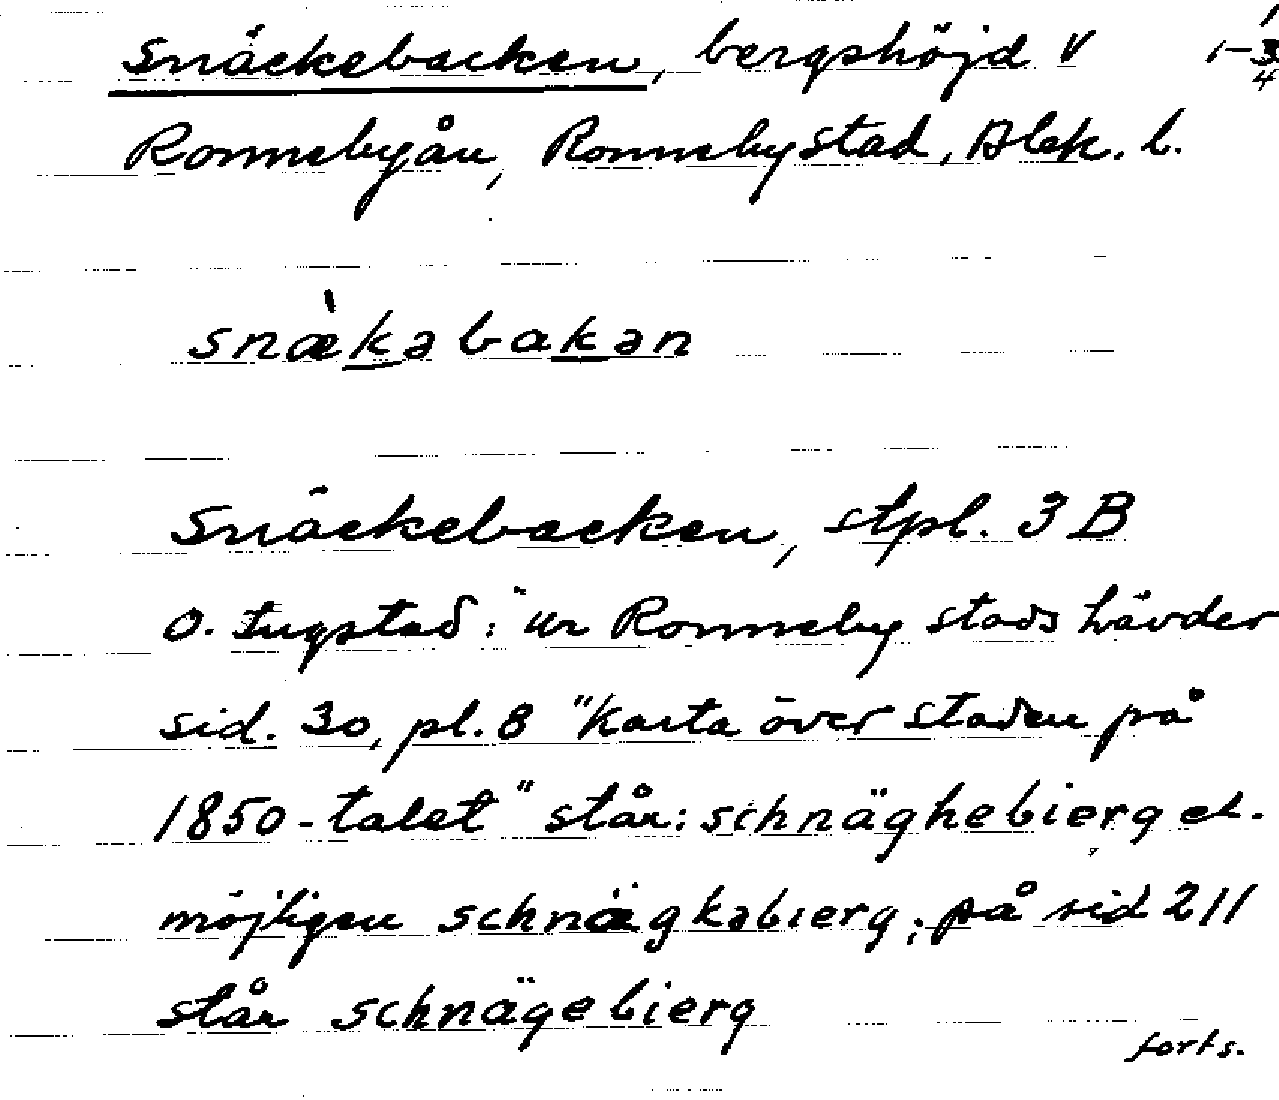 Snäckebacken, bergshöjd V 1-3/4
Ronnebyån, Ronneby stad, Blek. l.
snæ̀kəbakən
Snäckebacken, stpl. 3 B
O. Tugstad: "Ur Ronneby stads hävder
sid. 30, pl. 8 "Karta över staden på
1850-talet" står: schnäghebierg el.
möjligen schnägkəbierg; på sid 211
står schnägebierg
forts.